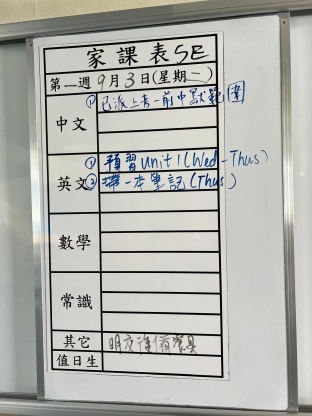 家課表 5E
第一週 9月3日(星期一)
中文 ① 已派上書一前中默範圍
英文 ① 預習 unit 1 (Wed - Thus)
② 帶一本筆記 (Thus)
數學
常識
其它 明交准備餐具
值日生